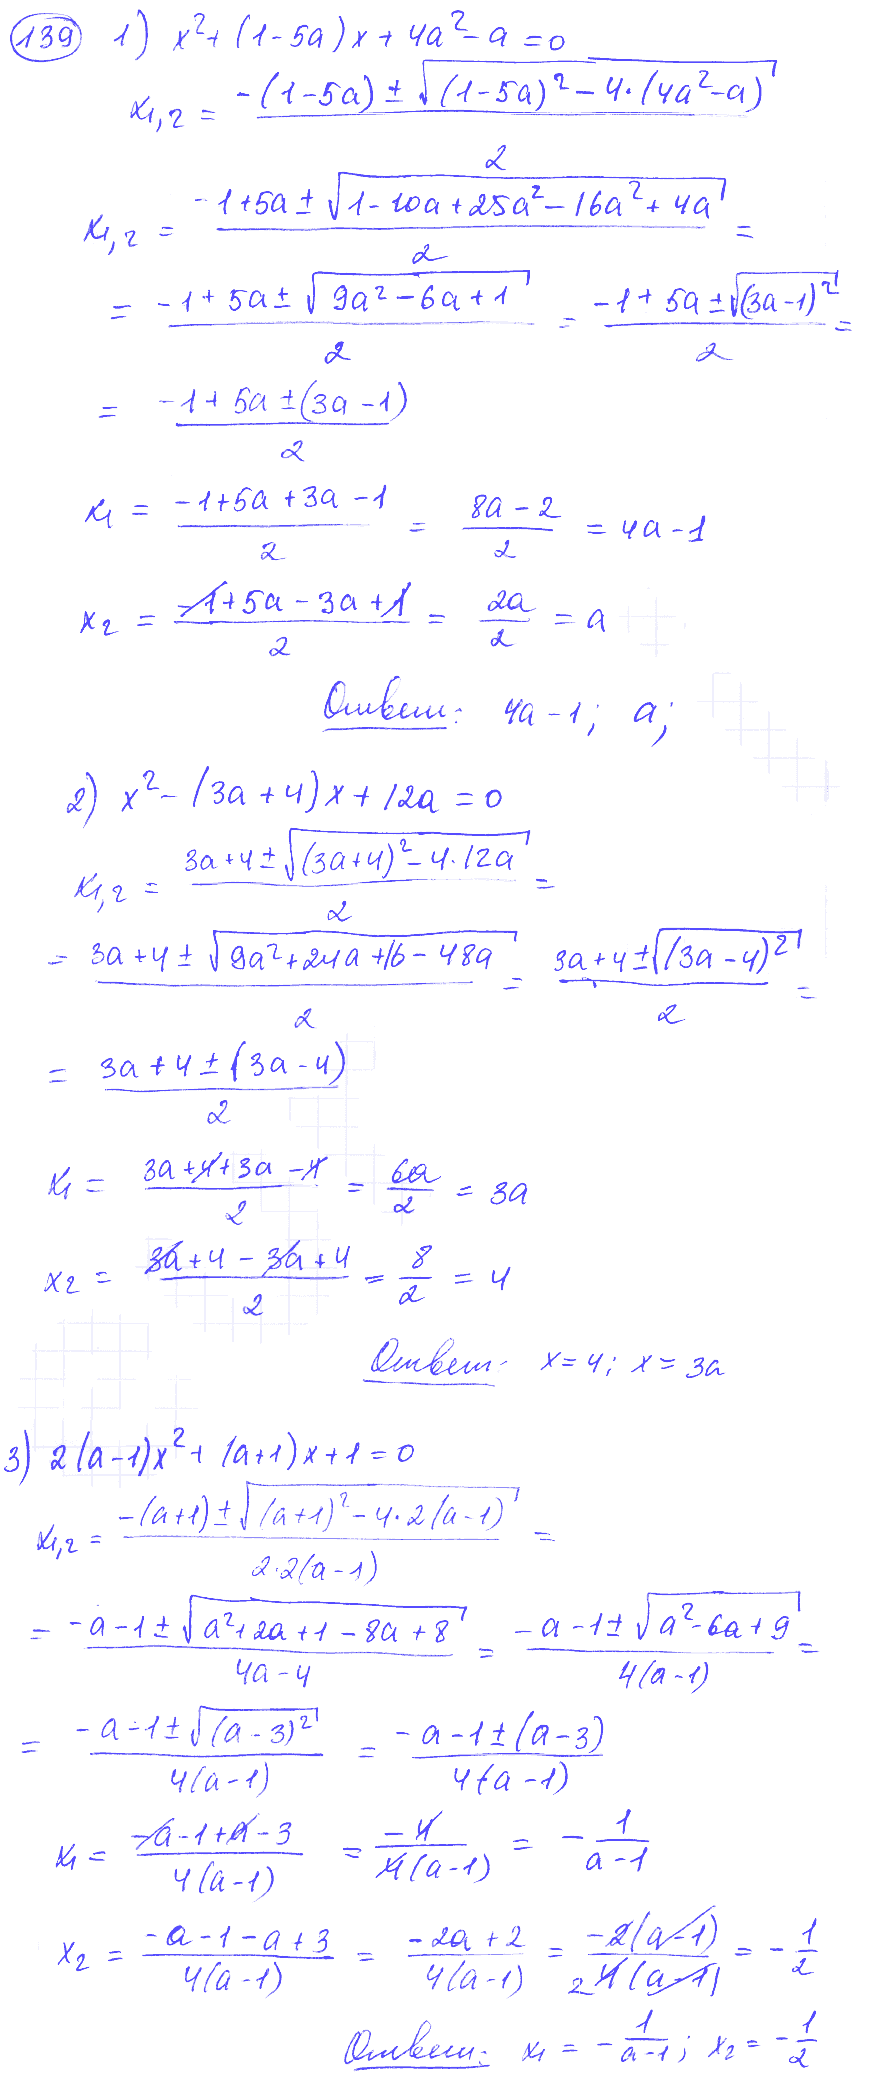 139 1) x² + (1-5a)x + 4a² - a = 0
x₁,₂ = (-(1-5a) ± √((1-5a)² - 4·(4a² - a))) / 2
x₁,₂ = (-1+5a ± √(1-10a+25a²-16a²+4a)) / 2 =
= (-1+5a ± √(9a²-6a+1)) / 2 = (-1+5a ± √((3a-1)²)) / 2 =
= (-1+5a ± (3a-1)) / 2
x₁ = (-1+5a+3a-1) / 2 = (8a-2) / 2 = 4a-1
x₂ = (-1+5a-3a+1) / 2 = 2a / 2 = a
Ответ: 4a-1; a;
2) x² - (3a+4)x + 12a = 0
x₁,₂ = (3a+4 ± √((3a+4)² - 4·12a)) / 2 =
= (3a+4 ± √(9a²+24a+16-48a)) / 2 = (3a+4 ± √((3a-4)²)) / 2 =
= (3a+4 ± (3a-4)) / 2
x₁ = (3a+4+3a-4) / 2 = 6a / 2 = 3a
x₂ = (3a+4-3a+4) / 2 = 8 / 2 = 4
Ответ: x=4; x=3a
3) 2(a-1)x² + (a+1)x + 1 = 0
x₁,₂ = (-(a+1) ± √((a+1)² - 4·2(a-1))) / (2·2(a-1)) =
= (-a-1 ± √(a²+2a+1-8a+8)) / (4a-4) = (-a-1 ± √(a²-6a+9)) / (4(a-1)) =
= (-a-1 ± √((a-3)²)) / (4(a-1)) = (-a-1 ± (a-3)) / (4(a-1))
x₁ = (-a-1+a-3) / (4(a-1)) = -4 / (4(a-1)) = -1/(a-1)
x₂ = (-a-1-a+3) / (4(a-1)) = (-2a+2) / (4(a-1)) = -2(a-1) / (2 4(a-1)) = -1/2
Ответ: x₁ = -1/(a-1); x₂ = -1/2